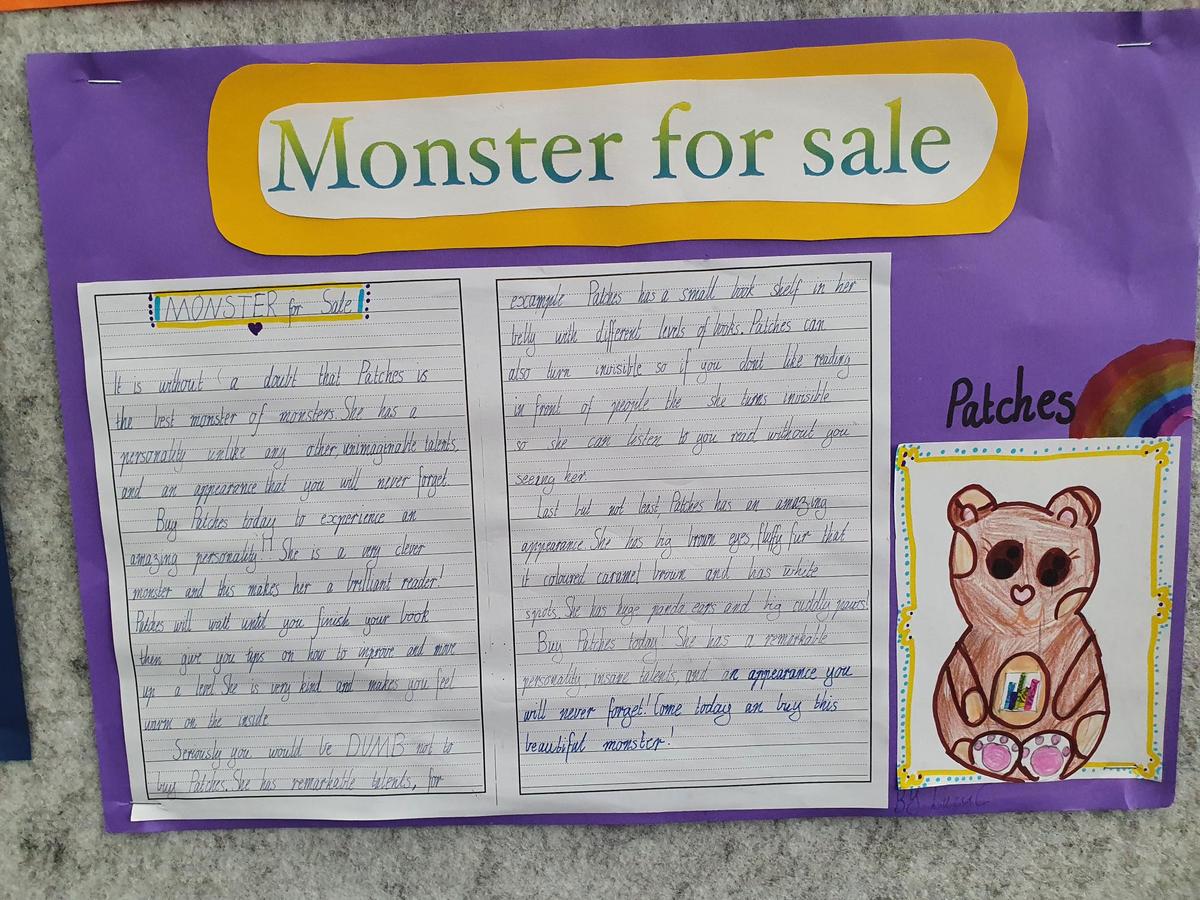 Monster for sale
MONSTER for Sale
It is without a doubt that Patches is
the best monster of monsters. She has a
personality unlike any other, unimaginable talents,
and an appearance that you will never forget.
Buy Patches today to experience an
amazing personality!! She is a very clever
monster and this makes her a brilliant reader!
Patches will wait until you finish your book
then give you tips on how to improve and move
up a level. She is very kind and makes you feel
warm on the inside
Seriously you would be DUMB not to
buy Patches. She has remarkable talents, for
example Patches has a small book shelf in her
belly with different levels of books. Patches can
also turn invisible so if you dont like reading
in front of people the she turns invisible
so she can listen to you read without you
seeing her.
Last but not least Patches has an amazing
appearance. She has big brown eyes, fluffy fur that
it coloured caramel brown and has white
spots. She has huge panda ears and big cuddly paws!
Buy Patches today! She has a remarkable
personality, insane talents, and an appearance you
will never forget! Come today an buy this
beautiful monster!
Patches